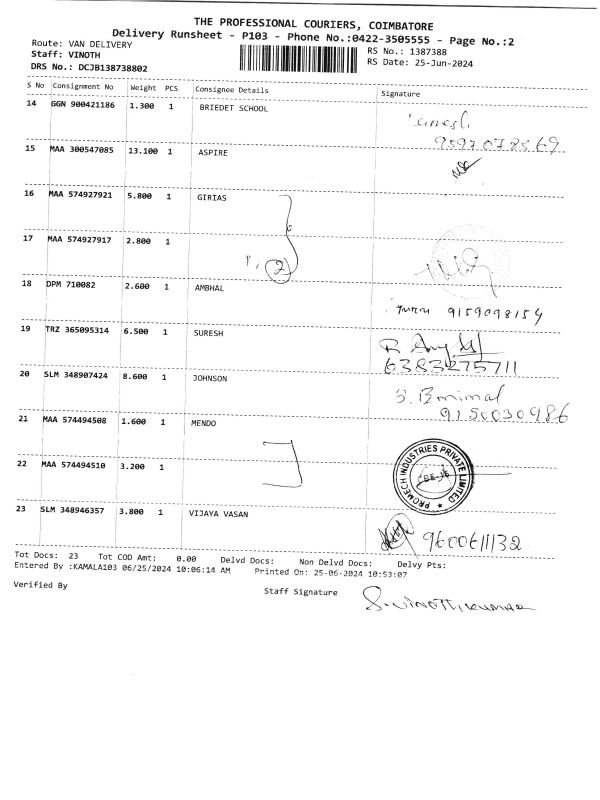 THE PROFESSIONAL COURIERS, COIMBATORE
Delivery Runsheet - P103 - Phone No.:0422-3505555 - Page No.:2
Route: VAN DELIVERY
RS No.: 1387388
Staff: VINOTH
RS Date: 25-Jun-2024
DRS No.: DCJB138738802
S No Consignment No Weight PCS Consignee Details Signature
14 GGN 900421186 1.300 1 BRIEDET SCHOOL
15 MAA 300547085 13.100 1 ASPIRE
16 MAA 574927921 5.800 1 GIRIAS
17 MAA 574927917 2.800 1
2
18 DPM 710082 2.600 1 AMBHAL
9159098154
19 TRZ 365095314 6.500 1 SURESH
6383275711
20 SLM 348907424 8.600 1 JOHNSON
9150030986
21 MAA 574494508 1.600 1 MENDO
22 MAA 574494510 3.200 1
PROMECH INDUSTRIES PRIVATE LIMITED
23 SLM 348946357 3.800 1 VIJAYA VASAN
9600611132
Tot Docs: 23 Tot COD Amt: 0.00 Delvd Docs: Non Delvd Docs: Delvy Pts:
Entered By :KAMALA103 06/25/2024 10:06:14 AM Printed On: 25-06-2024 10:53:07
Verified By
Staff Signature
S.vinothkumar